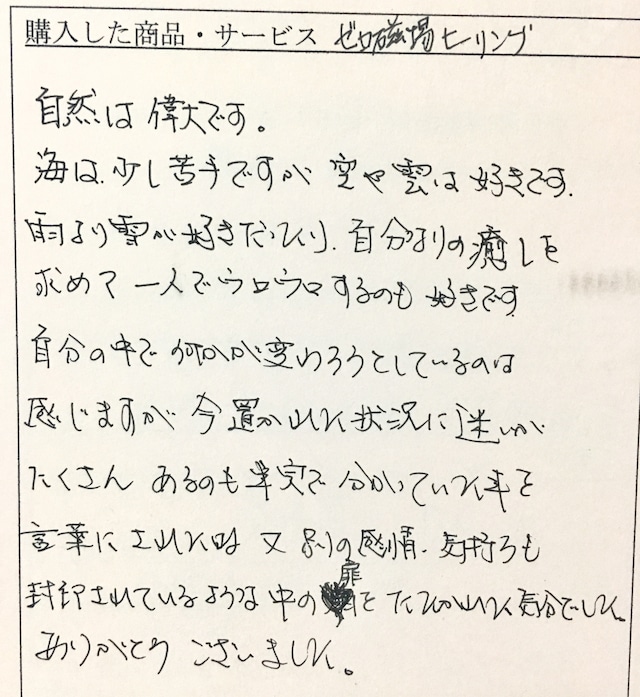 購入した商品・サービス ゼロ磁場ヒーリング
自然は偉大です。
海は、少し苦手ですが 空や雲は好きです。
雨より雪が好きだったり、自分なりの癒しを
求めて一人でウロウロするのも好きです
自分の中で何かが変わろうとしているのは
感じますが 今置かれた状況に迷いが
たくさん あるのも事実で 分かっていた事を
言葉に された時 又 別の感情、気持ちも
封印されているような 中の扉を たたかれた気分でした。
ありがとう ございました。